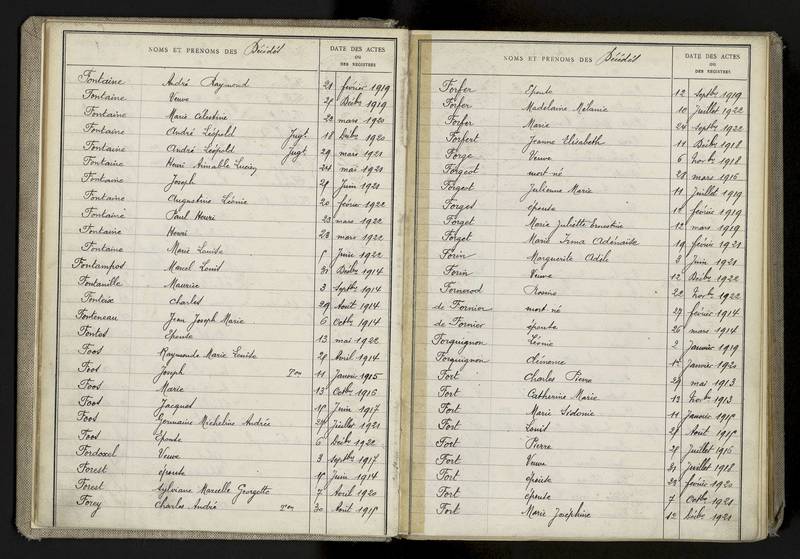 NOMS ET PRÉNOMS DES Décédés
DATE DES ACTES
OU
DES REGISTRES
Fontaine André Raymond 21 février 1919
Fontaine Veuve Décbre 1919
Fontaine Marie Célestine 22 mars 1920
Fontaine André Léopold Jugt 18 Décbre 1920
Fontaine André Léopold Jugt 29 mars 1921
Fontaine Henri Aimable Lucien 24 mai 1921
Fontaine Joseph Juin 1921
Fontaine Augustine Léonie 20 février 1922
Fontaine Paul Henri 23 mars 1922
Fontaine Henri 23 mars 1922
Fontaine Marie Louise Juin 1922
Fontampos Marcel Louis 31 Décbre 1914
Fontanille Maurice 3 Septbre 1914
Fonteix Charles 29 Août 1914
Fonteneau Jean Joseph Marie 6 Octbre 1914
Fontes Epouse 13 mai 1922
Foos Raymonde Marie Louise Avril 1914
Foos Joseph Ton 11 Janvier 1915
Foos Marie 13 Octbre 1916
Foos Jacques Juin 1917
Foos Germaine Micheline Andrée Juillet 1921
Foos Epouse 6 Décbre 1922
Fordoxel Veuve 3 Septbre 1917
Forest épouse Juin 1914
Forest Sylviane Marcelle Georgette 7 Avril 1920
Forey Charles André Ton 30 Août 1915
NOMS ET PRÉNOMS DES Décédés
DATE DES ACTES
OU
DES REGISTRES
Forfer Epouse 12 Septbre 1919
Forfer Madelaine Mélanie 10 Juillet 1922
Forfer Marie 24 Septbre 1922
Forfert Jeanne Elisabeth 11 Décbre 1918
Forge Veuve 6 Novbre 1918
Forgeot mort-né mars 1916
Forgeot Julienne Marie 11 Juillet 1919
Forges épouse février 1919
Forget Marie Juliette Ernestine 12 mars 1919
Forget Marie Irma Adénaïse 19 février 1921
Forin Marguerite Adèle 3 Juin 1921
Forin Veuve 12 Décbre 1922
Fornerod Rosine 22 Novbre 1922
de Fornier mort né 27 février 1914
de Fornier épouse 26 mars 1914
Forquignon Léonie 2 Janvier 1919
Forquignon Clémence Janvier 1921
Fort Charles Pierre 29 mai 1913
Fort Catherine Marie 13 Novbre 1913
Fort Marie Sidonie 11 Janvier 1915
Fort Louis Août 1915
Fort Pierre Juillet 1916
Fort Veuve 31 Juillet 1918
Fort épouse 23 février 1920
Fort épouse 7 Octbre 1921
Fort Marie Joséphine Décbre 1921